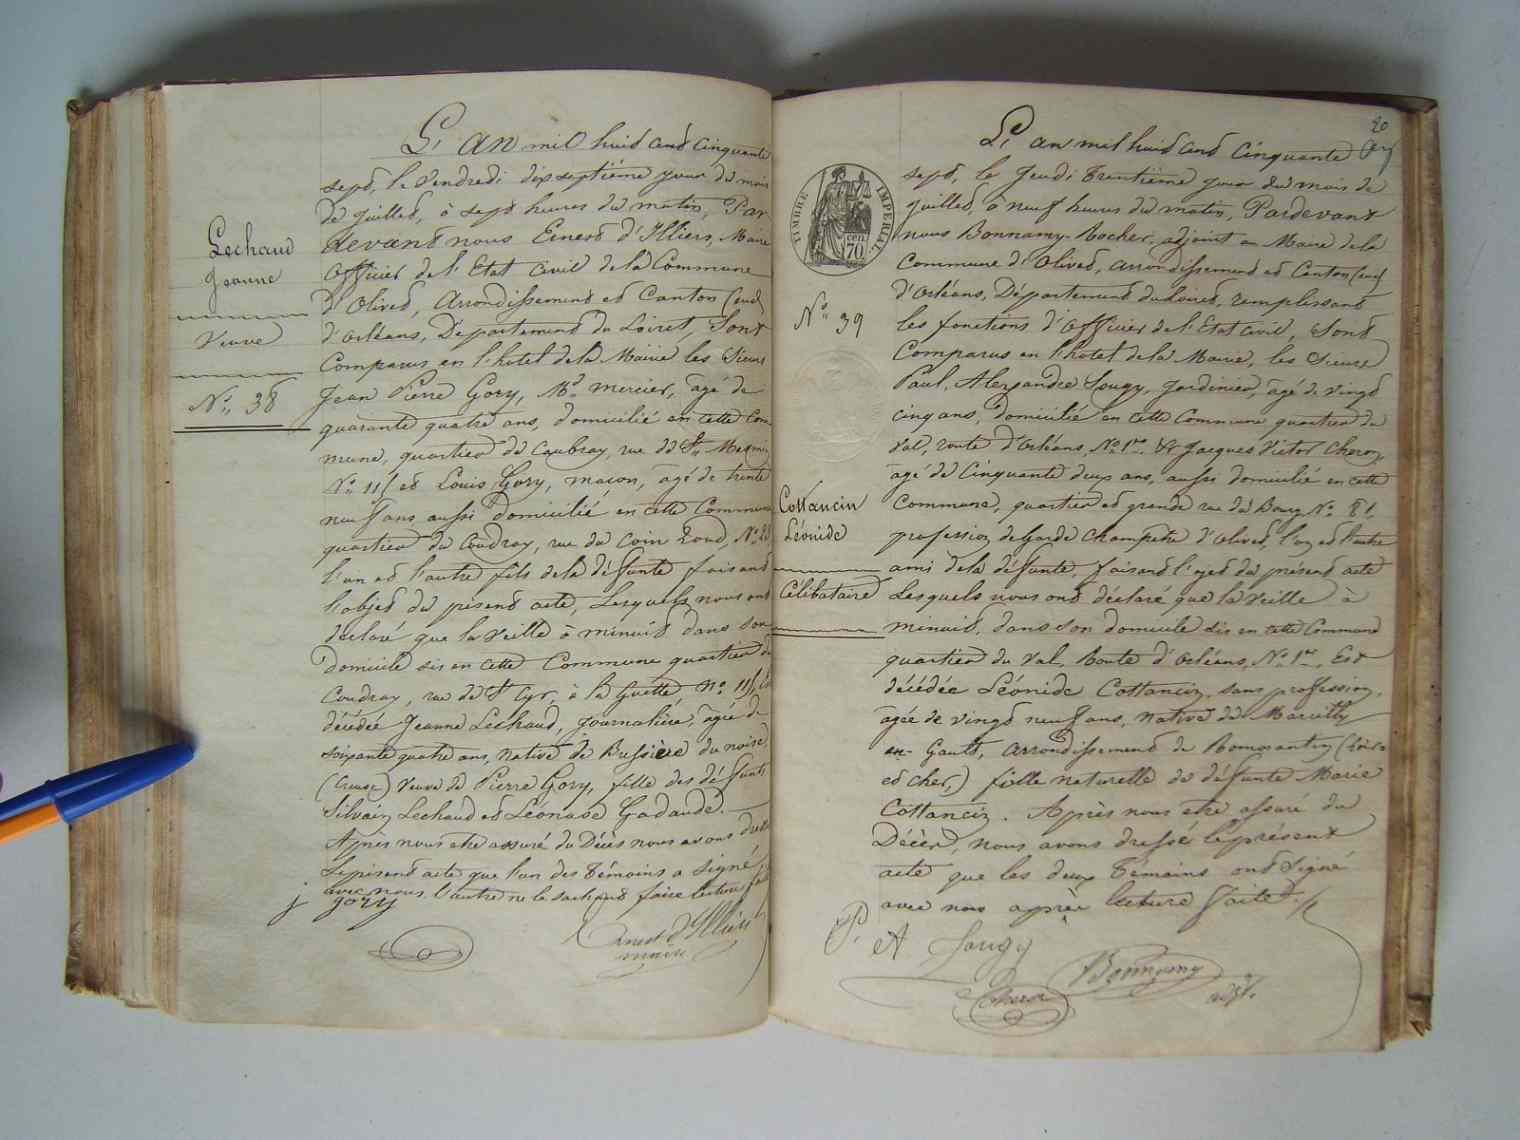 Lechaud
Jeanne
Veuve
N° 38
L'An mil huit cent cinquante
sept, le Vendredi dix septième jour du mois
de Juillet, à sept heures du matin, Par
devant nous Ernest d'Illiers, Maire
Officier de l'Etat Civil de la Commune
d'Olivet, Arrondissement et Canton (sud)
d'Orléans, Département du Loiret, Sont
Comparus en l'hotel de la Mairie les Sieurs
Jean Pierre Gory, Md mercier, agé de
quarante quatre ans, domicilié en cette Com
mune, quartier du Caubray, rue de St Mesmin
N° 11, et Louis Gory, macon, agé de trente
neuf ans aussi domicilié en cette Commune
quartier du Coudray, rue du Coin Rond, N° 28
l'un et l'autre fils de la défunte faisant
l'objet du présent acte, Lesquels nous ont
déclaré que la veille à minuit dans son
domicile sis en cette Commune quartier du
Coudray, rue de St Cyr, à la Guette N° 11, Est
décédée Jeanne Lechaud, Journalière, agée de
soixante quatre ans, native de Bussière du noise,
(Creuse) Veuve de Pierre Gory, fille des défunts
Silvain Lechaud et Léonase Gadaude.
Après nous etre assuré du Décès nous avons dressé
le présent acte que l'un des Témoins a signé
avec nous l'autre ne le sachant faire lecture fai
j gory
Ernest d'Illiers
maire
20
TIMBRE IMPERIAL
CEN. 70
N° 39
Cottancin
Léonide
Célibataire
L'an mil huit cent cinquante
sept, le Jeudi Trentième jour du mois de
Juillet, à neuf heures du matin, Pardevant
nous Bonnamy-Rocher, adjoint au Maire de la
Commune d'Olivet, arrondissement et Canton (sud)
d'Orléans, Département du Loiret, remplissant
les fonctions d'Officier de l'Etat civil, Sont
Comparus en l'hotel de la Mairie, les Sieurs
Paul, Alexandre Sougy, Jardinier, agé de vingt
cinq ans, domicilié en cette Commune quartier du
Val, route d'Orléans, N° 1er, & Jacques Victor Cheron,
agé de Cinquante deux ans, aussi domicilié en cette
Commune, quartier et grande rue du Bourg N° 81,
profession de Garde Champetre d'Olivet, l'un et l'autre
ami de la défunte, faisant l'objet du présent acte
Lesquels nous ont déclaré que la Veille à
minuit, dans son domicile sis en cette Commune
quartier du Val, Route d'Orléans, N° 1er, Est
décédée Léonide Cottancin, sans profession,
agée de Vingt neuf ans, native de Marcilly
en Gault, arrondissement de Romorantin (Loir
et cher,) fille naturelle de défunte Marie
Cottancin. Après nous etre assuré du
Décès, nous avons dressé le présent
acte que les deux Témoins ont Signé
avec nous après lecture faite.
P. A Sougy
Bonnamy
Cheron
adjt.